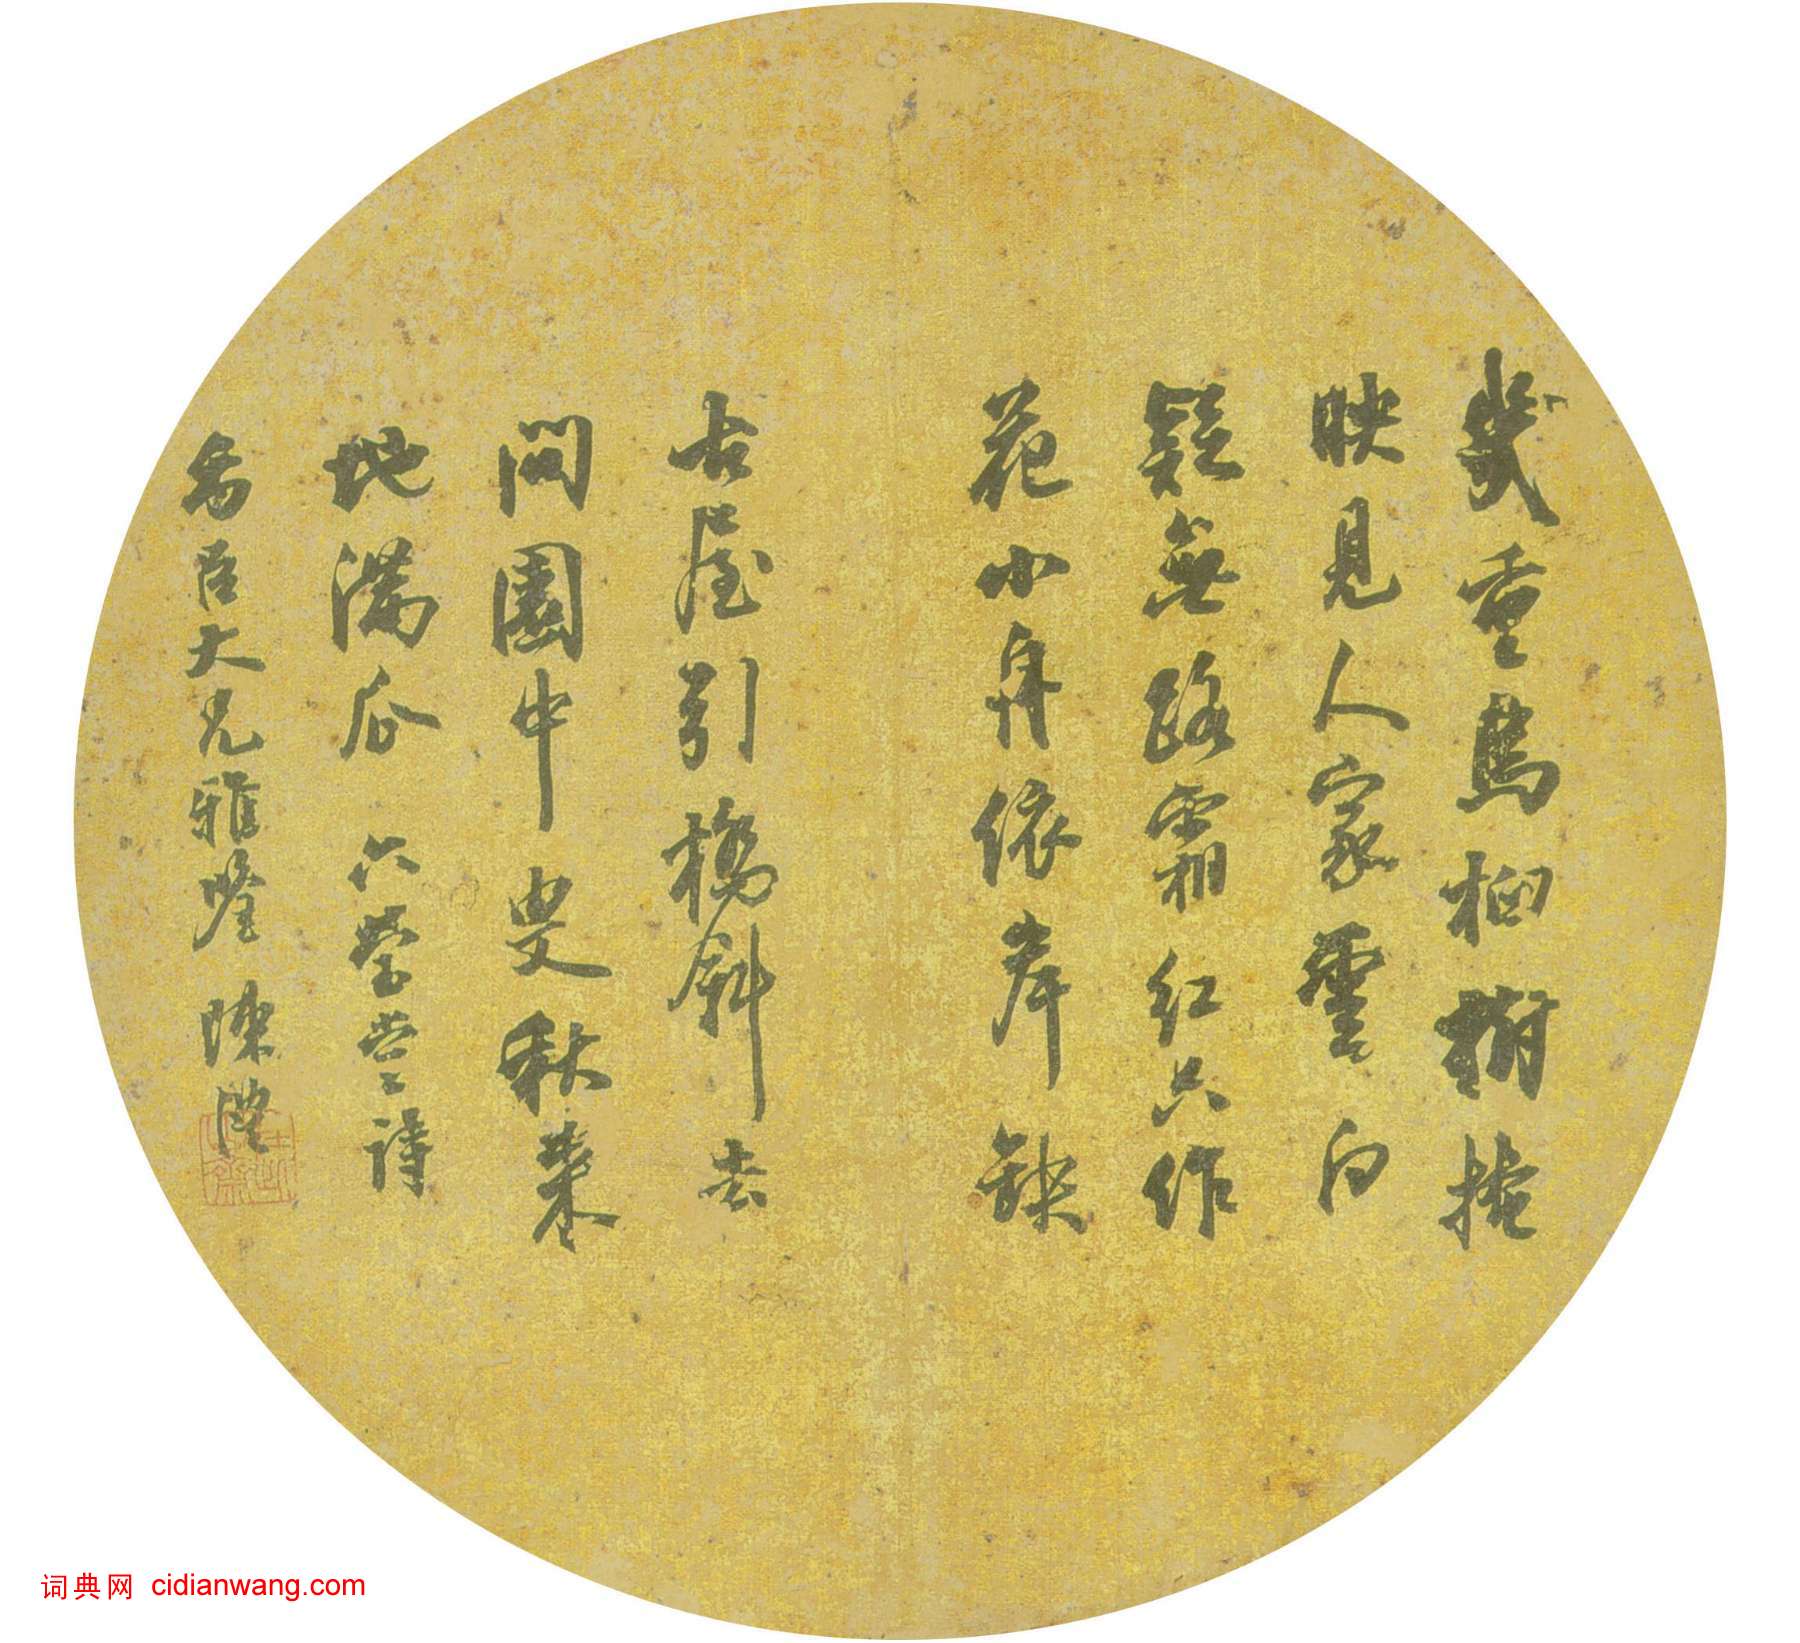 幾重烏桕樹掩
映見人家雲白
疑無路霜紅只作
花小舟依岸缺
古屋引橋斜去
問園中叟秋來
地滿瓜 六瑩堂詩
喬臣大兄雅鑒 陳澧
词典网 cidianwang.com